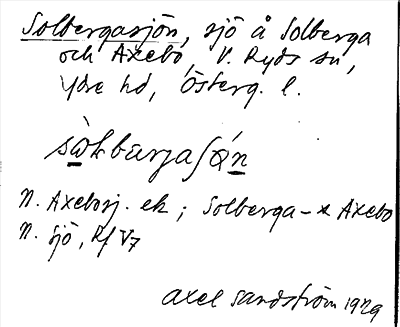 Solbergasjön, sjö å Solberga
och Axebo, V. Ryds sn,
Ydre hd, Österg. l.
N. Axebosj. ek; Solberga- x Axebo
N. sjö, Rf V7
Axel Sandström 1929